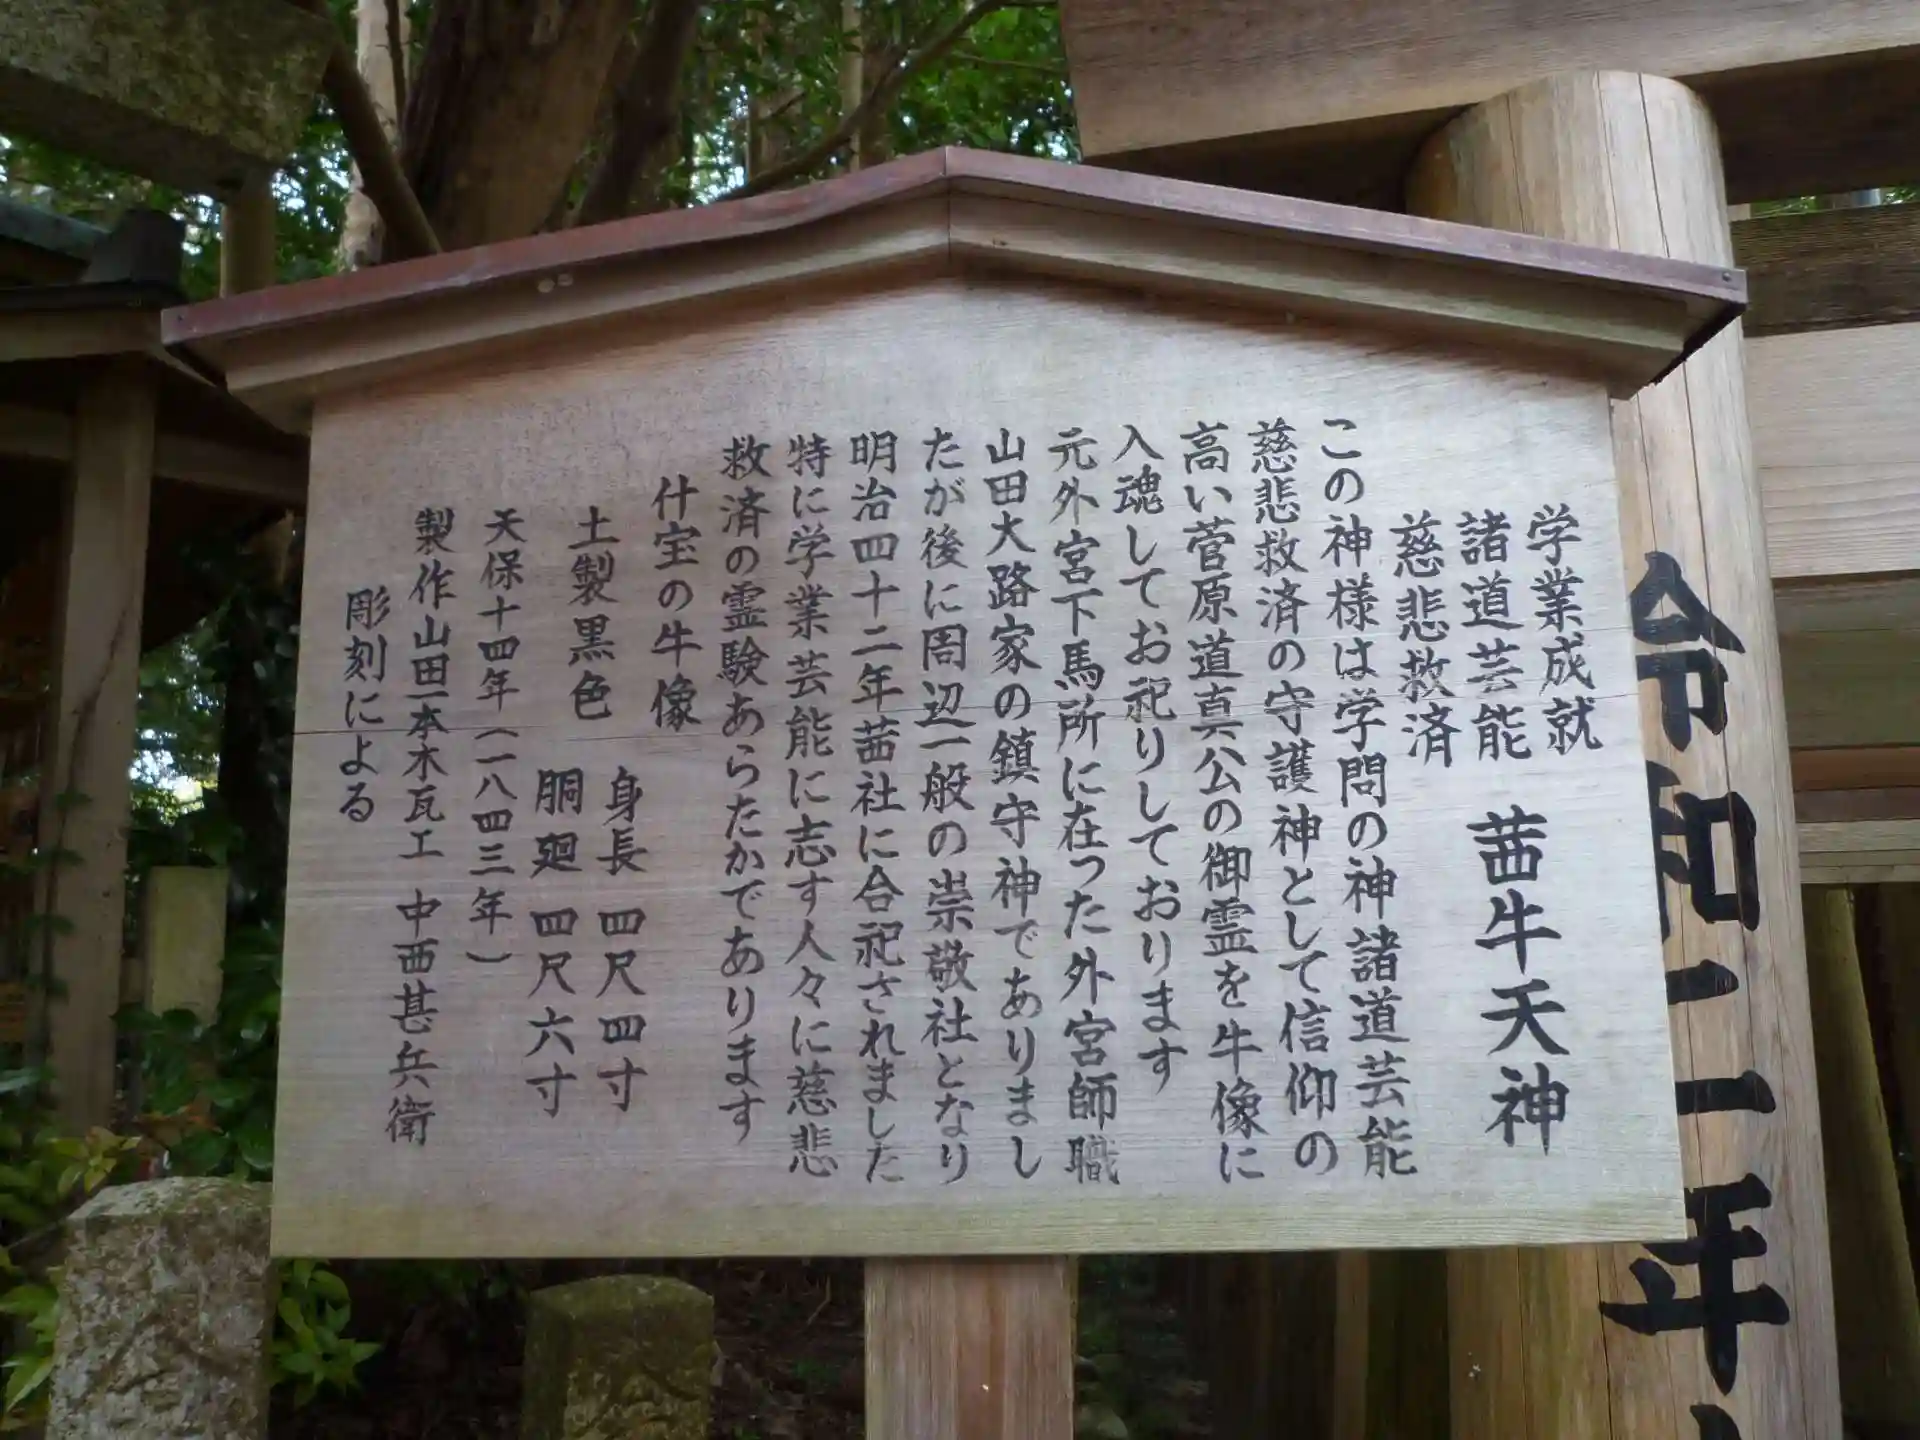 学業成就
諸道芸能
慈悲救済
茜牛天神
この神様は学問の神諸道芸能
慈悲救済の守護神として信仰の
高い菅原道真公の御霊を牛像に
入魂してお祀りしております
元外宮下馬所に在った外宮師職
山田大路家の鎮守神でありまし
たが後に周辺一般の崇敬社となり
明治四十二年茜社に合祀されました
特に学業芸能に志す人々に慈悲
救済の霊験あらたかであります
什宝の牛像
土製黒色
身長 四尺四寸
胴廻 四尺六寸
天保十四年(一八四三年)
製作山田一本木瓦工 中西甚兵衛
彫刻による
令和二年